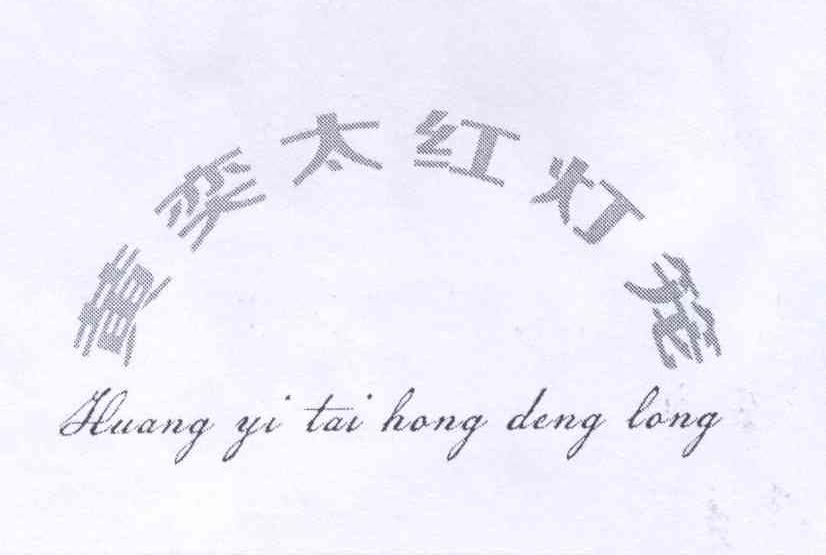 黄奕太红灯笼
Huang yi tai hong deng long